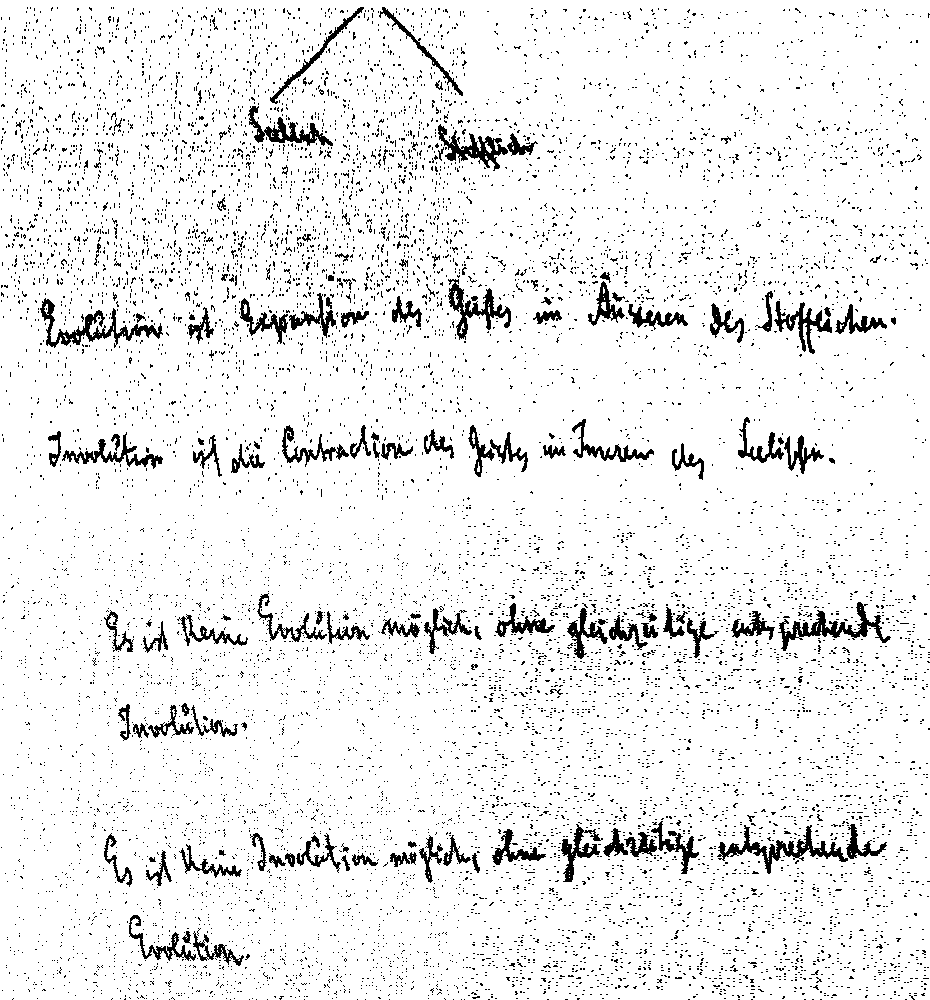 Seelisch Stofflich
Evolution ist Expansion des Geistes im Äusseren des Stofflichen.
Involution ist die Contraction des Geistes im Inneren des Seelischen.
Es ist keine Evolution möglich, ohne gleichzeitige entsprechende
Involution.
Es ist keine Involution möglich, ohne gleichzeitige entsprechende
Evolution.